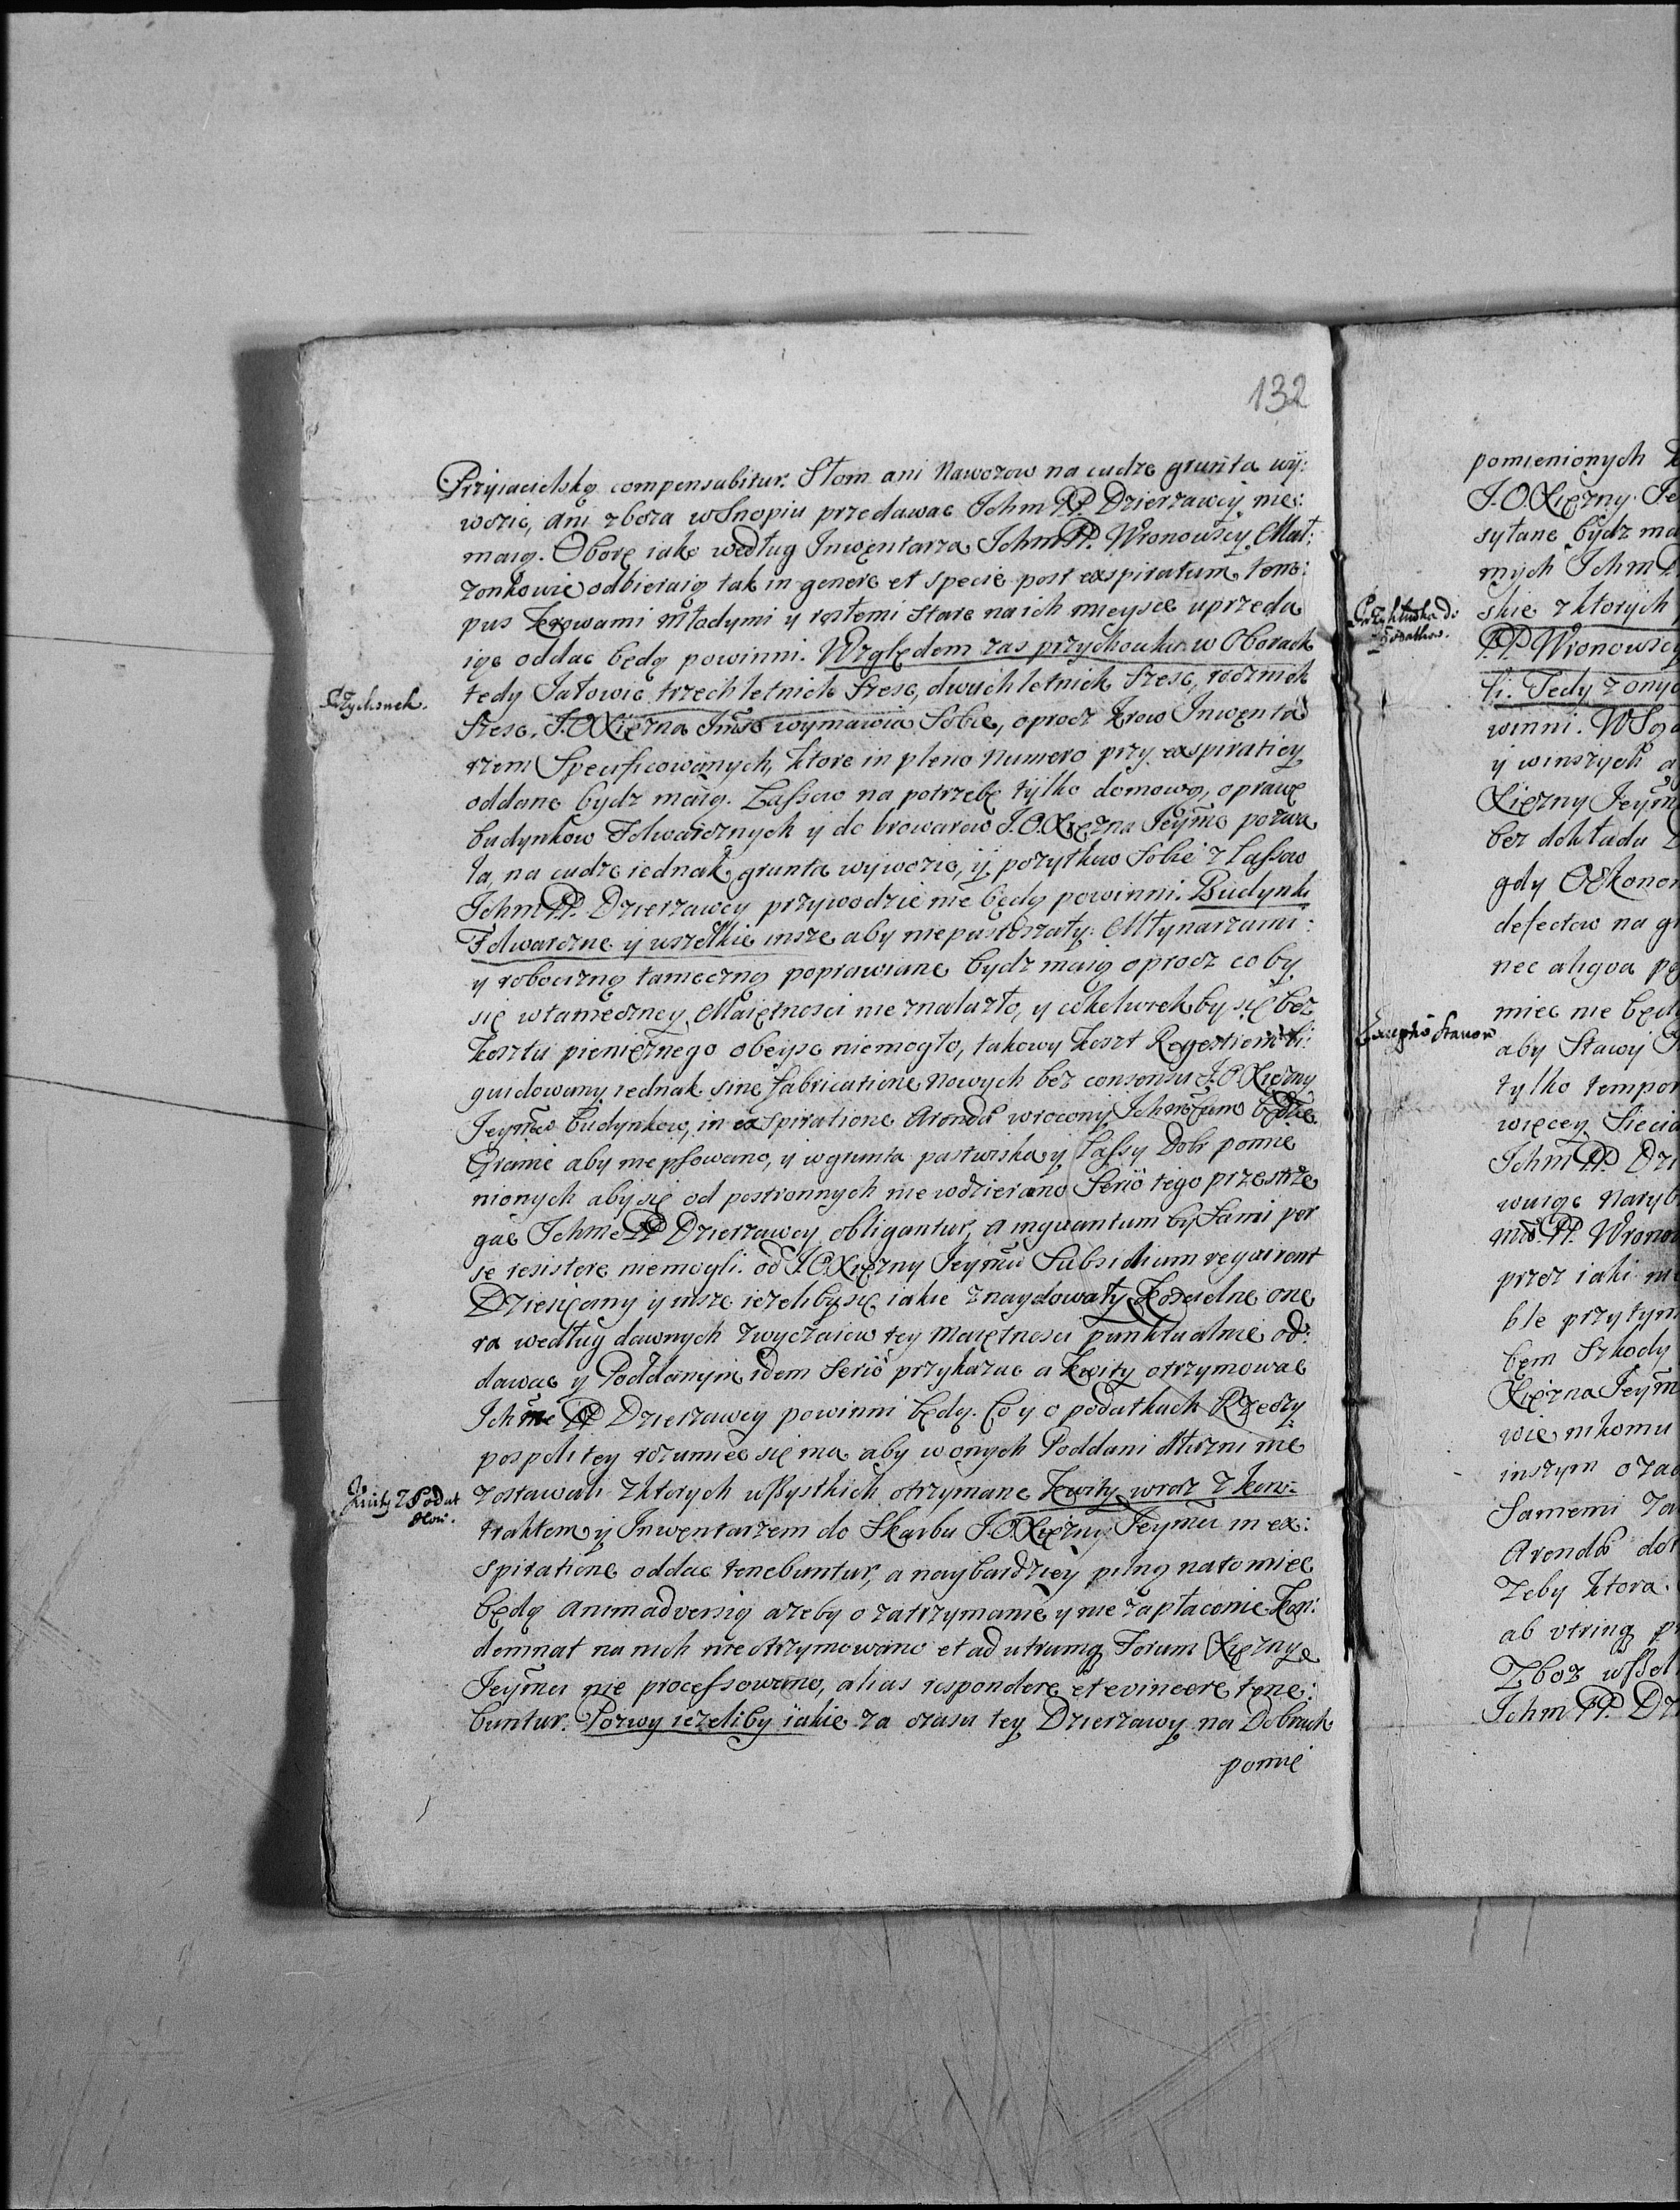 132
Przyiacielską compensabitur. Słom ani Nawozow na cudze grunta wy:
wozic, ani zboza w Snopiu przedawac Ichm PP. Dzierzawcy nie:
maią. Oborę iako według Inwentarza Ichm PP. Wronowscy Mał:
zonkowie odbieraią tak in genere et specie post exspiratum tem:
pus Krowami młodymi y rosłemi stare na ich mieysce uprzeda
iąc oddac będą powinni. Względem zas przychowku w Oborach
tedy Jałowic trzechletnich szesc, dwuchletnich szesc, rocznich
Przychowek.
szesc, J.O.Xięzna Jmśc wymawia Sobie, oprocz Krow Inwenta
rzem Specificowanych, ktore in pleno Numero przy exspiratiey
oddane bydz maią. Lassow na potrzebę tylko domową, oprawę
budynkow Folwarcznych y do browarow J.O.Xięzna Jeymc pozwa
la, na cudze iednak grunta wywozic, y pozytkow Sobie z Lassow
Ichm PP. Dzierzawcy przywodzic nie będą powinni. Budynki
Folwarczne y wszelkie insze aby niepustoszały: Młynarzami
y robocizną tameczną poprawiane bydz maią oprocz coby
się w tameczney Maiętnosci nie znalazło, y cokolwiek by się bez
kosztu pieniężnego obeysc niemogło, takowy koszt Regestrem li:
quidowany iednak sine fabricatione Nowych bez consensu J.O.Xięzny
Jeymci Budynkow, in exspiratione Arendy wrocony Ichmsciom będzie.
Granic aby nie psowano, y w grunta pastwiska y Lassy Dobr pomie
nionych aby się od postronnych nie wdzierano Serio tego przestrze
gac Ichmc PP Dzierzawcy obligantur, a inquantum by Sami per
se resistere niemogli. od J.O.Xięzny Jeymci Subsidium requirent
Dziesięciny y insze iezeliby się iakie znaydowały Koscielne one
ra według dawnych zwyczaiow tey Maiętnosci punktualnie od:
dawac y Poddanym idem Serio przykazac a Kwity otrzymowac
Ichmc PP Dzierzawcy powinni będą. Co y o podatkach Rzeczy:
pospolitey rozumiec się ma aby w onych Poddani dłuzni nie
Kwity z Podat
kow.
zostawali z ktorych wszystkich otrzymane Kwity wraz z kon:
traktem y Inwentarzem do Skarbu J.O.Xięzny Jeymci in ex:
spiratione oddac tenebuntur, a naybardziey pilną na to miec
będą animadversią azeby o zatrzymanie y nie zapłacenie Kon:
demnat na nich nie otrzymowano et ad utrumq Forum Xięzny
Jeymci nie processowano, alias respondere et evincere tene:
buntur. Pozwy iezeliby iakie za czasu tey Dzierzawy na Dobrach
pomie
pomienionych
J.O.Xięzny
syłane bydz
mych Ichm
skie z ktorych
PP Wronowscy
li. Tedy z onych
winni.
y winszych
Xięzny Jeym
bez dokładu
gdy
defectow na
nec aliqva
miec nie będ
aby Stawy
tylko
więcey
Ichm PP. Dzi
PP. Wronow
przez iaki
ble przytym
bem Szkody
Xięzna Jeym
wie nikomu
inszym
Samemi
Arendo
Zeby ktora
ab utrinq
Zboz
Ichm PP. Dz